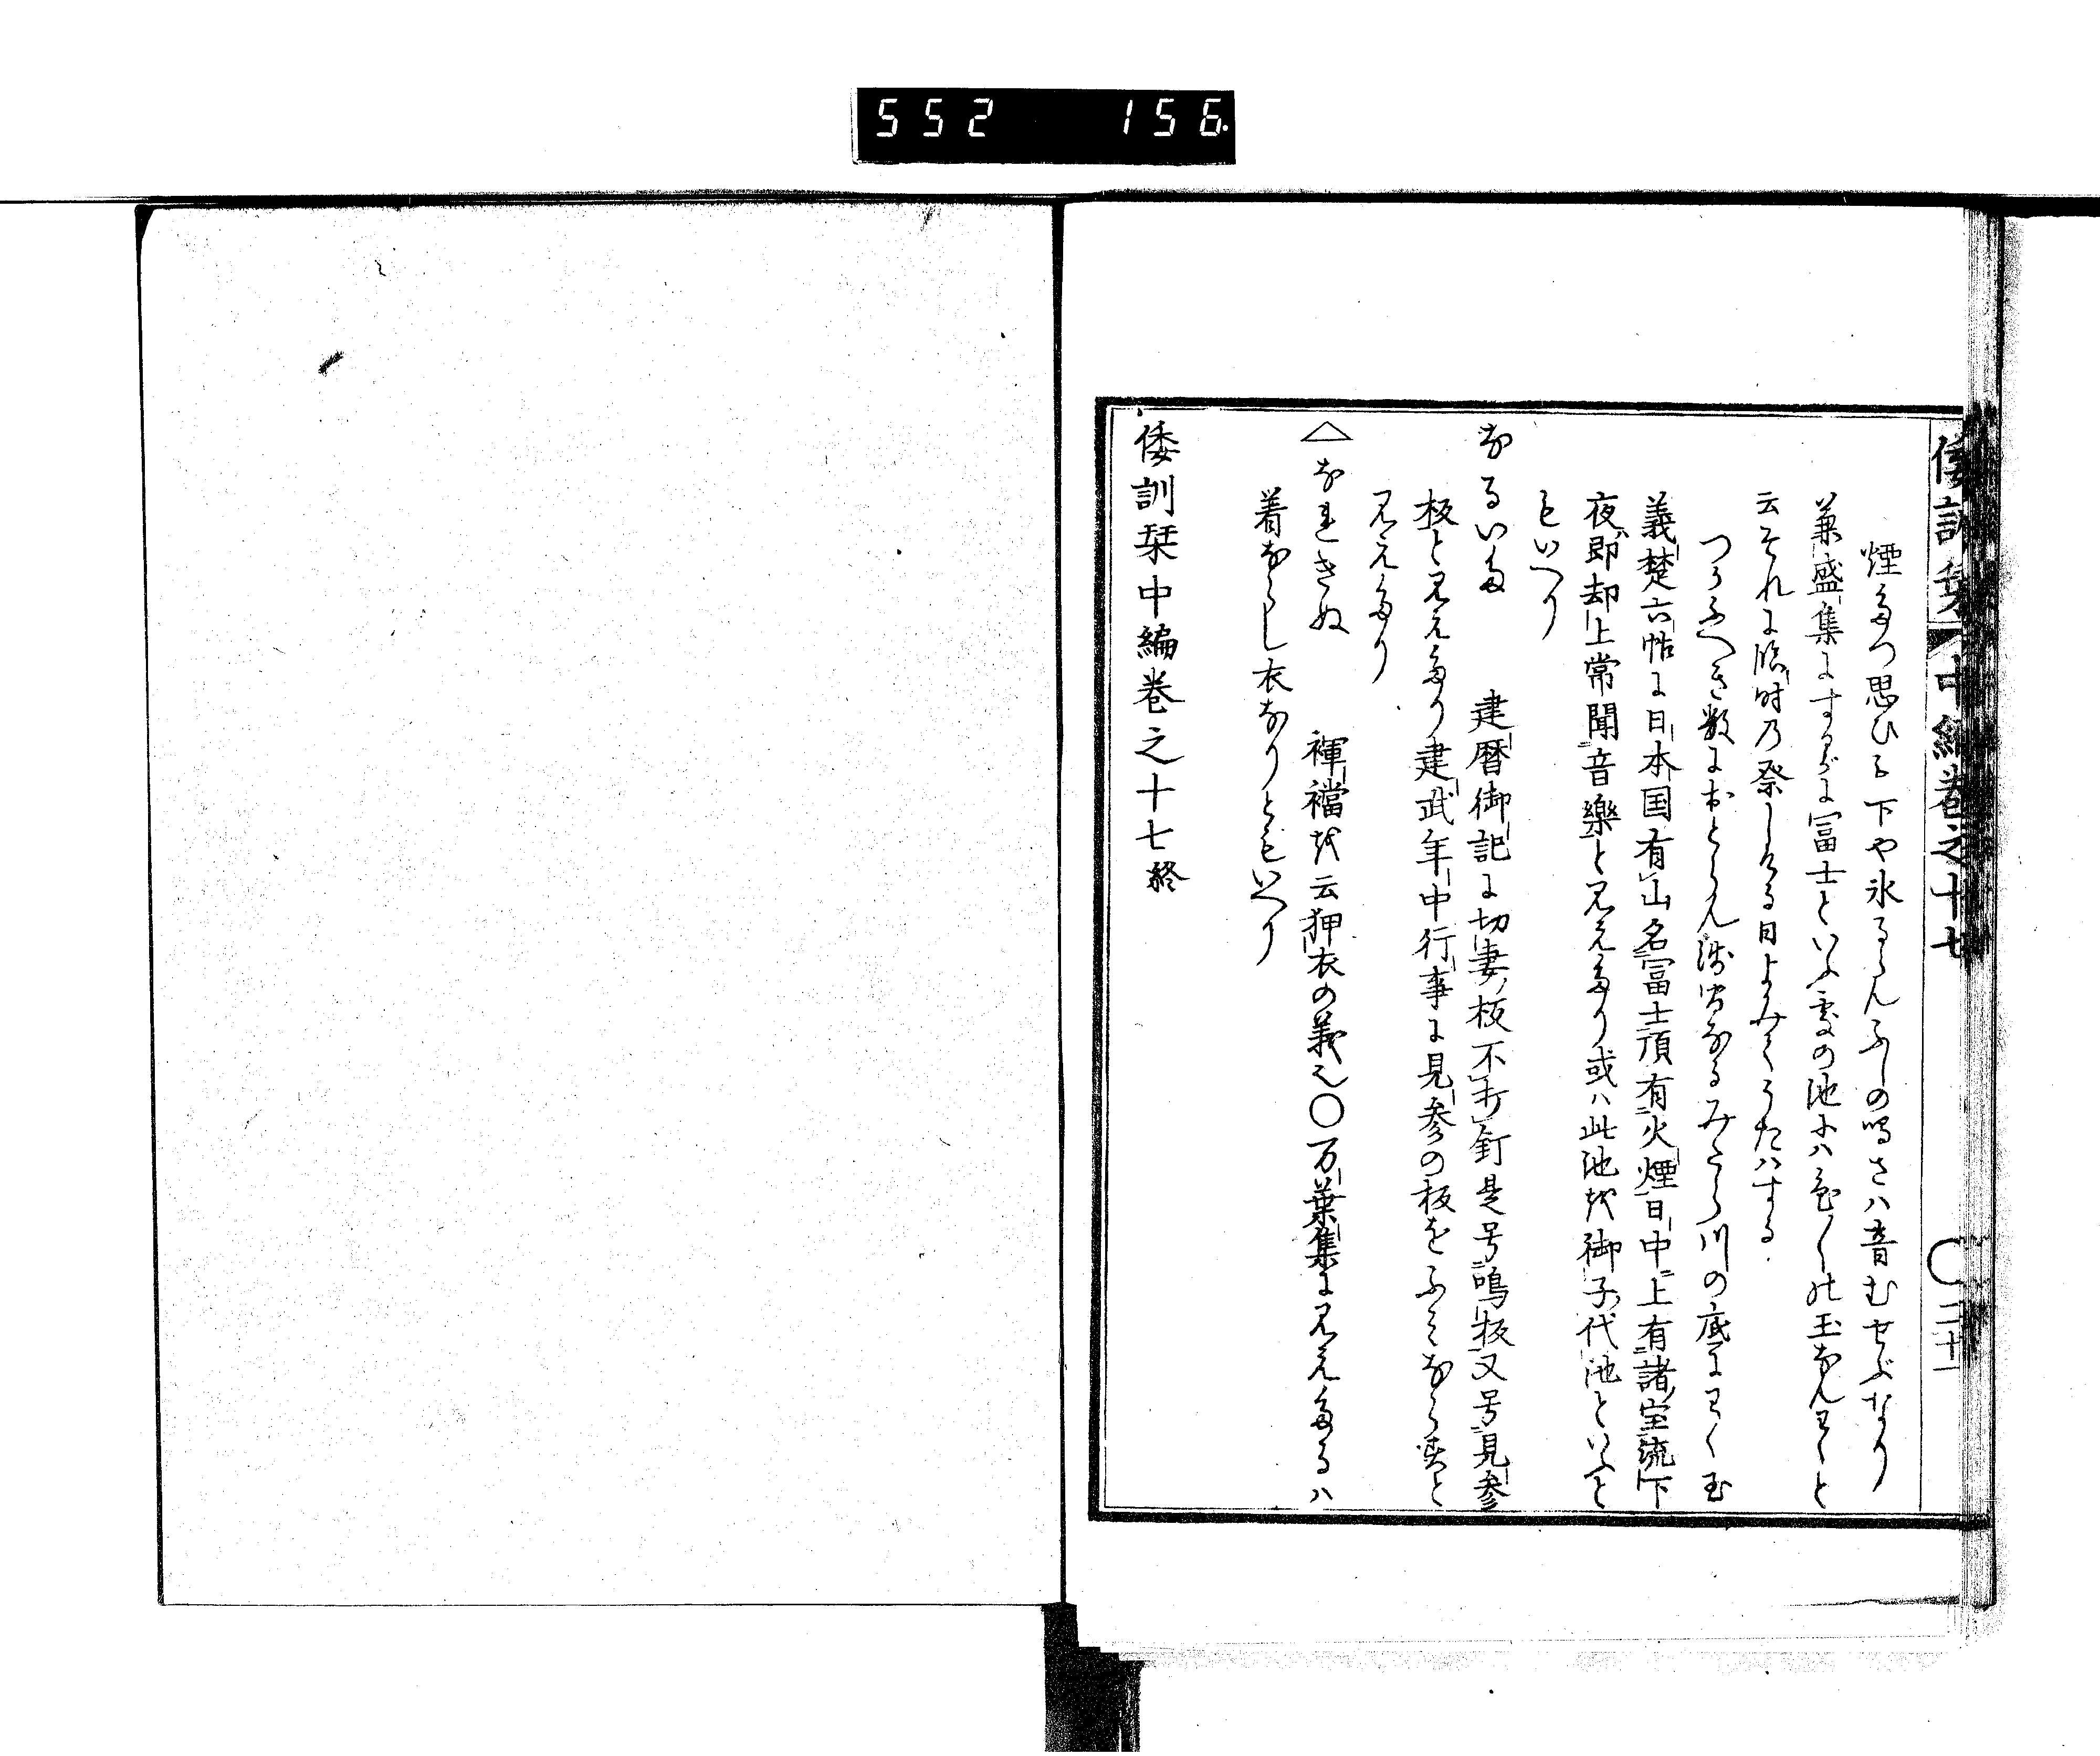 552 156
倭訓栞 中編巻之十七 〇三十一
煙たつ思ひも下や氷るらんふしの鳴さハ音むせぶなり
兼盛集にするがに冨士といふ処の池にハ色〱の玉なんわくと
云それに臨時の祭しける日よみてうたハする
つかふへき数におとらん浅間なるみたらし川の底にわく玉
義楚六帖に日本国有山名冨士頂有火煙日中上有諸宝流下
夜即却上常聞音樂と見えたり或ハ此池を御子代池といふと
もいへり
なるいた 建暦御記に切妻板不打釘是号鳴板又号見参
板と見えたり建武年中行事に見参の板をふみならすと
見えたり
△なれきぬ 褌襠を云狎衣の義也〇万葉集に見えたるハ
着ならし衣なりともいへり
倭訓栞中編巻之十七終